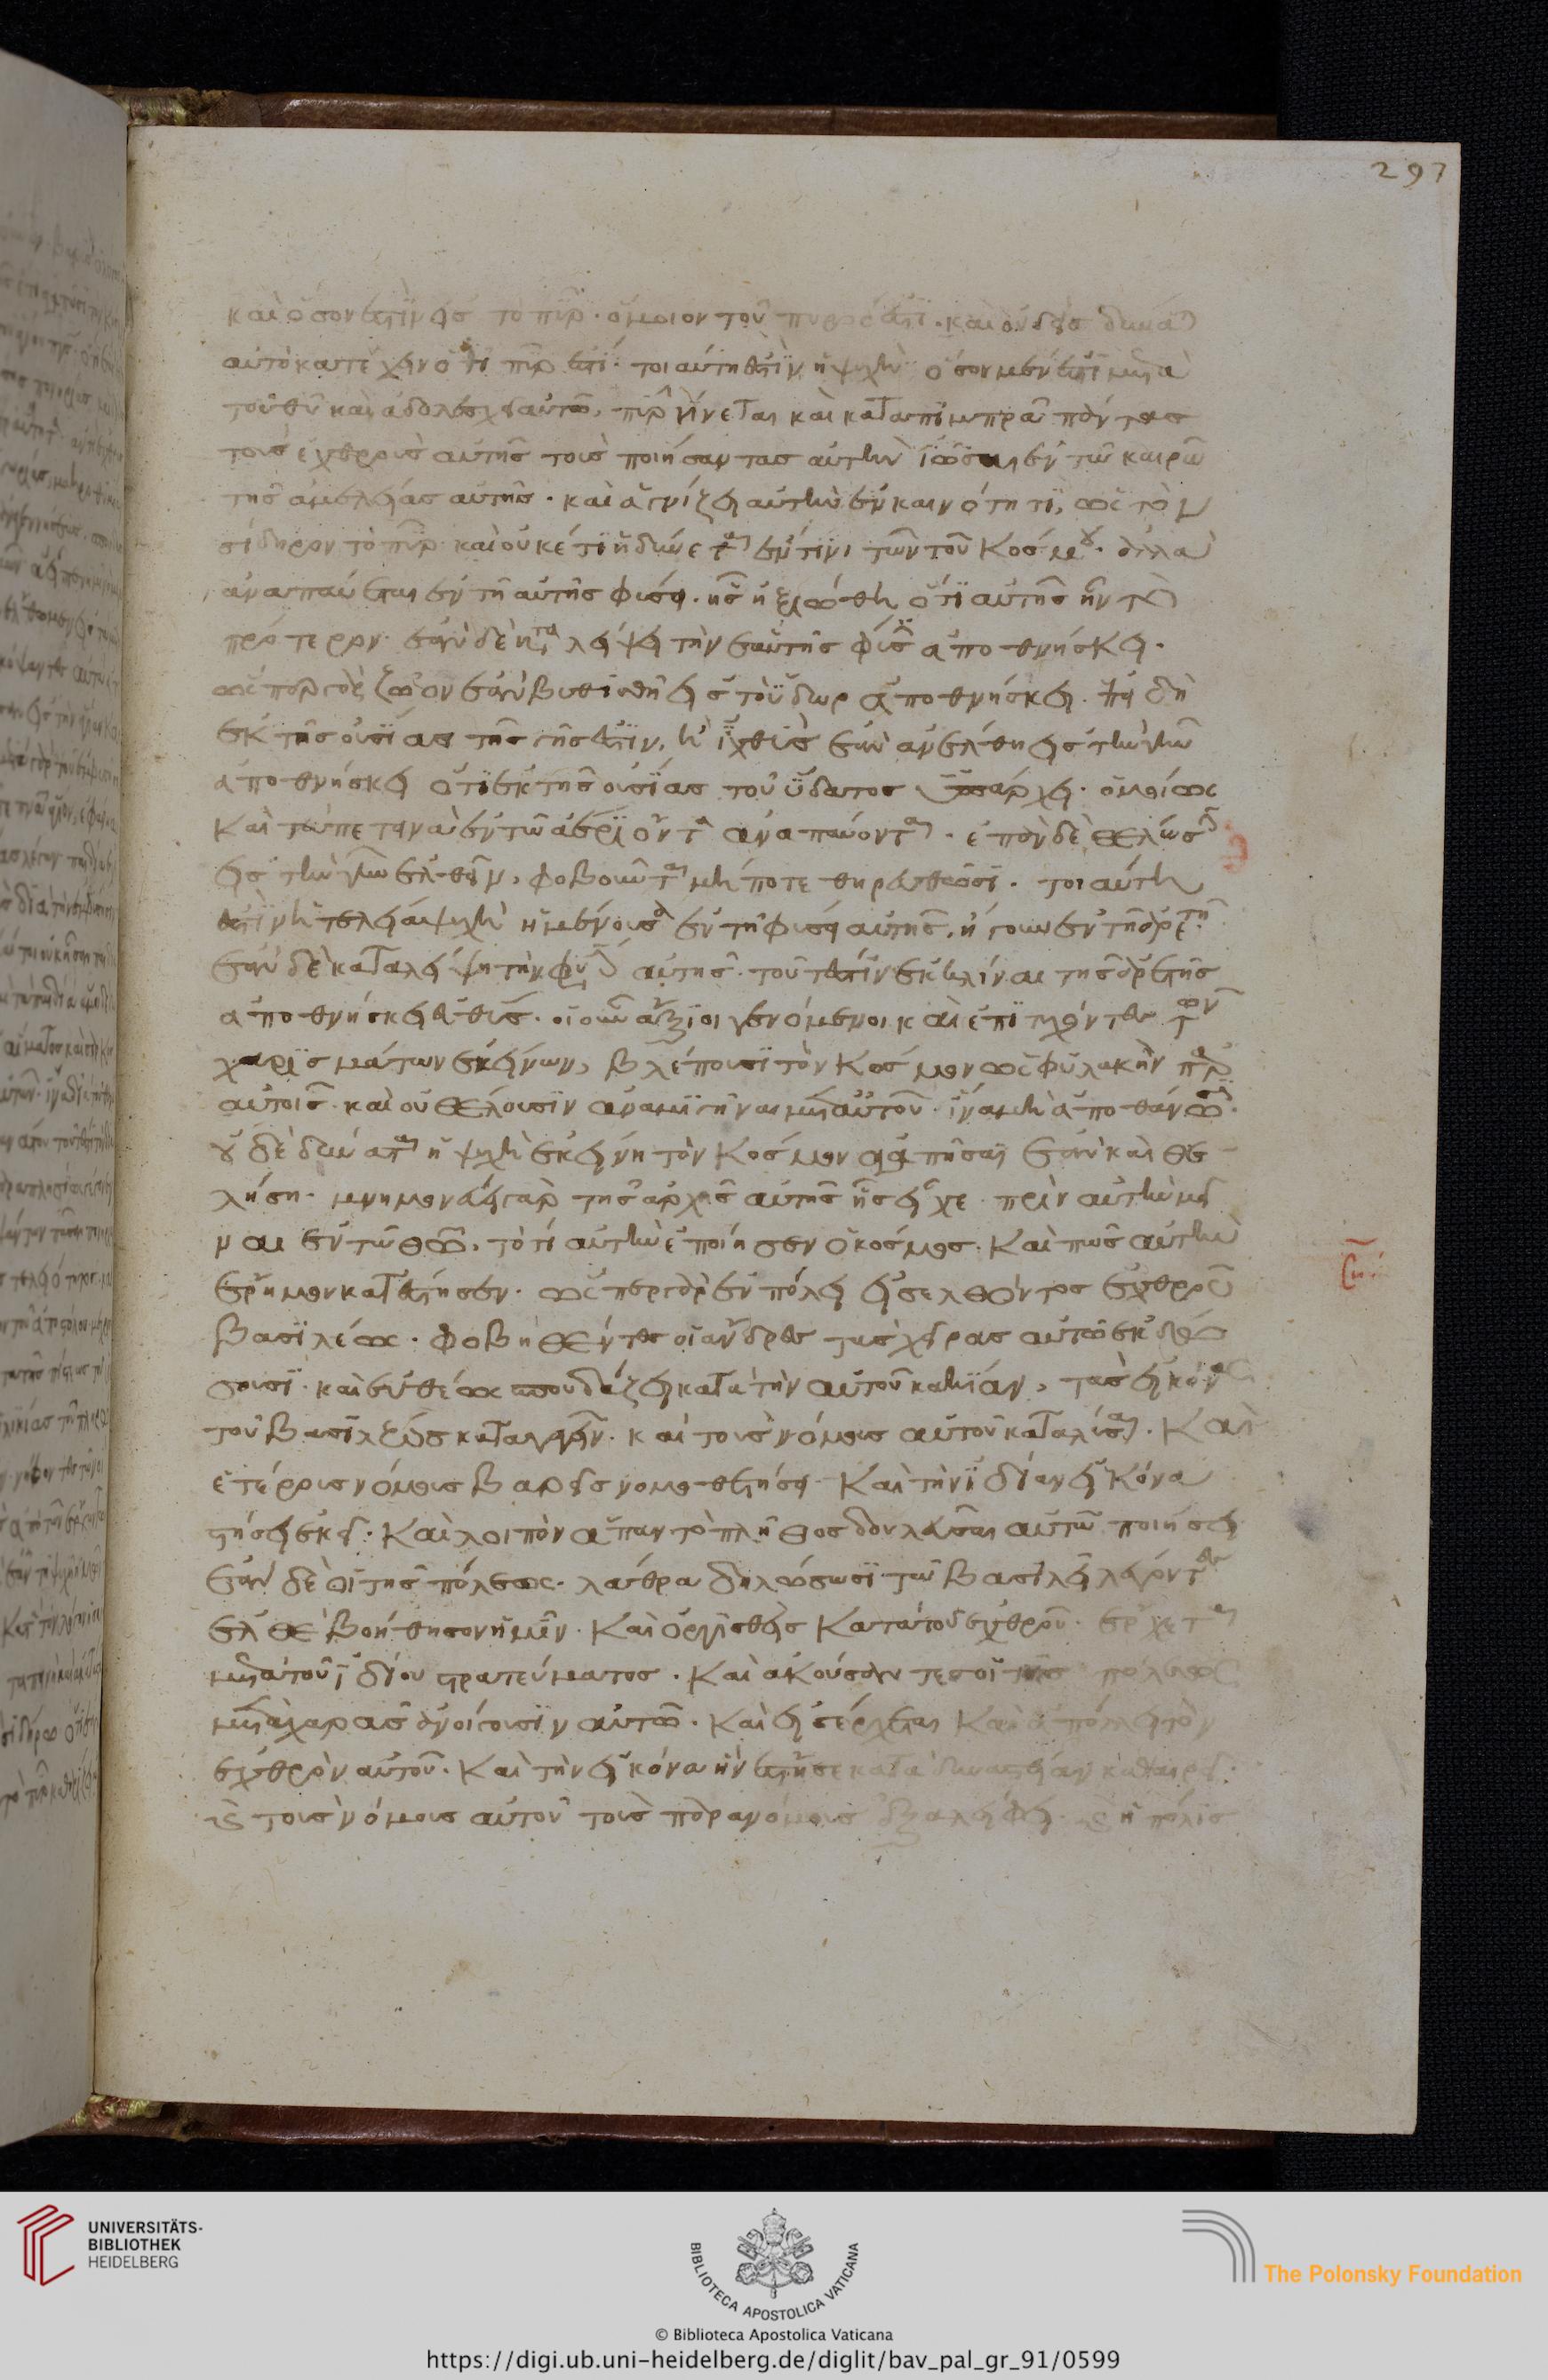 297
καὶ ὅσον ἐστὶν εἰς τὸ πῦρ. ὅμοιον τοῦ πυρός ἐστι. καὶ οὐδεὶς δύνα
αὐτὸ κατέχειν ὅτι πῦρ ἐστί. τοιαύτη ἐστὶν ἡ ψυχὴ ὅσον μέν ἐστι μετὰ
τοῦ θυ καὶ ἀδολέσχει αὐτῶ, πῦρ γίνεται καὶ καταπίμπρα πάντας
τοὺς ἐχθροὺς αὐτῆς τοὺς ποιήσαντας αὐτὴν ἐν τῶ καιρῶ
τῆς ἀμελείας αὐτῆς. καὶ ἁγνίζει αὐτὴν ἐν καινότητι, ὡς τὸν
σίδηρον τὸ πῦρ καὶ οὐκέτι ἡδύνεται ἔν τινι τῶν τοῦ κόσμου. ἀλλὰ
ἀναπαύεται ἐν τῆ αὐτῆς φύσει. ἧς ἠξιώθη ὅτι αὐτῆς ἦν τὸ
πρότερον. ἐὰν δὲ καταλείψη τὴν ἑαυτῆς φύσιν ἀποθνήσκει.
ὥσπερ γὰρ ζῶον ἐὰν βυθισθῆ εἰς τὸ ὕδωρ ἀποθνήσκει. ἐπειδὴ
ἐκ τῆς οὐσίας τῆς γῆς ἐστιν, ἢ ἰχθὺς ἐὰν ἀνέλθη εἰς τὴν γῆν
ἀποθνήσκει ὅτι ἐκ τῆς οὐσίας τοῦ ὕδατος ὑπάρχει. ὁμοίως
καὶ τὰ πετηνὰ ἐν τῶ ἀέρι ὄντα ἀναπαύονται. ἐπὰν δὲ θελήσωσιν
εἰς τὴν γῆν ἐλθεῖν, φοβοῦνται μήποτε θηραθῶσι. τοιαύτη
ἐστὶν ἡ τελεία ψυχὴ ἡ μένουσα ἐν τῆ φύσει αὐτῆς, ἤγουν ἐν τῆ ἀρετῆ.
ἐὰν δὲ καταλείψη τὴν φύσιν αὐτῆς. τοῦτ ἔστιν ἐκκλίναι τῆς ἀρετῆς
ἀποθνήσκει εὐθύς. οἱ οὖν ἄξιοι γενόμενοι καὶ ἐπιτυχόντες τῶν
χαρισμάτων ἐκείνων, βλέπουσι τὸν κόσμον ὡς φυλακὴν παρ
αὐτοῖς. καὶ οὐ θέλουσιν ἀναμιγῆναι μετ αὐτοῦ. ἵνα μὴ ἀποθάνωσιν.
οὐδὲ δύναται ἡ ψυχὴ ἐκείνη τὸν κόσμον ἀγαπῆσαι ἐὰν καὶ θε
λήση. μνημονεύει γὰρ τῆς ἀρχῆς αὐτῆς ἧς εἶχε πρὶν αὐτὴν μεῖ
ναι ἐν τῶ θῶ. τὸ τί αὐτὴν ἐποίησεν ὁ κόσμος. καὶ πῶς αὐτὴν
ἔρημον κατέστησεν. ὥσπερ γὰρ ἐν πόλει εἰσελθόντος ἐχθροῦ
βασιλέως. φοβηθέντες οἱ ἄνδρες τὰς χεῖρας αὐτῶ ἐκδιδό
ουσι. καὶ εὐθέως σπουδάζει κατὰ τὴν αὐτοῦ κακίαν, τὰς εἰκόνας
τοῦ βασιλέως καταλύειν. καὶ τοὺς νόμους αὐτοῦ καταλῦσαι. καὶ
ἑτέρους νόμους βαρεῖς νομοθετήσει. καὶ τὴν ἰδίαν εἰκόνα
στήσει ἐκεῖ. καὶ λοιπὸν ἅπαν τὸ πλῆθος δουλεῦσαι αὐτῶ ποιήσει.
ἐὰν δὲ οἱ τῆς πόλεως. λάθρα δηλώσωσι τῶ βασιλεῖ λέγοντες
ἐλθὲ βοήθησον ἡμῖν. καὶ ὀργισθεὶς κατὰ τοῦ ἐχθροῦ. ἔρχεται
μετὰ τοῦ ἰδίου στρατεύματος. καὶ ἀκούσαντες οἱ τῆς πόλεως
μετὰ χαρᾶς ἀνοίγουσιν αὐτῶ. καὶ εἰσέρχεται καὶ ἀπόλλει τὸν
ἐχθρὸν αὐτοῦ. καὶ τὴν εἰκόνα ἣν ἔστησε κατὰ δυναστείαν καθαιρεῖ.
καὶ τοὺς νόμους αὐτοῦ τοὺς παρανόμους ἐξαλείφει. καὶ ἡ πόλις
UNIVERSITÄTS-
BIBLIOTHEK
HEIDELBERG
BIBLIOTECA APOSTOLICA VATICANA
The Polonsky Foundation
© Biblioteca Apostolica Vaticana
https://digi.ub.uni-heidelberg.de/diglit/bav_pal_gr_91/0599